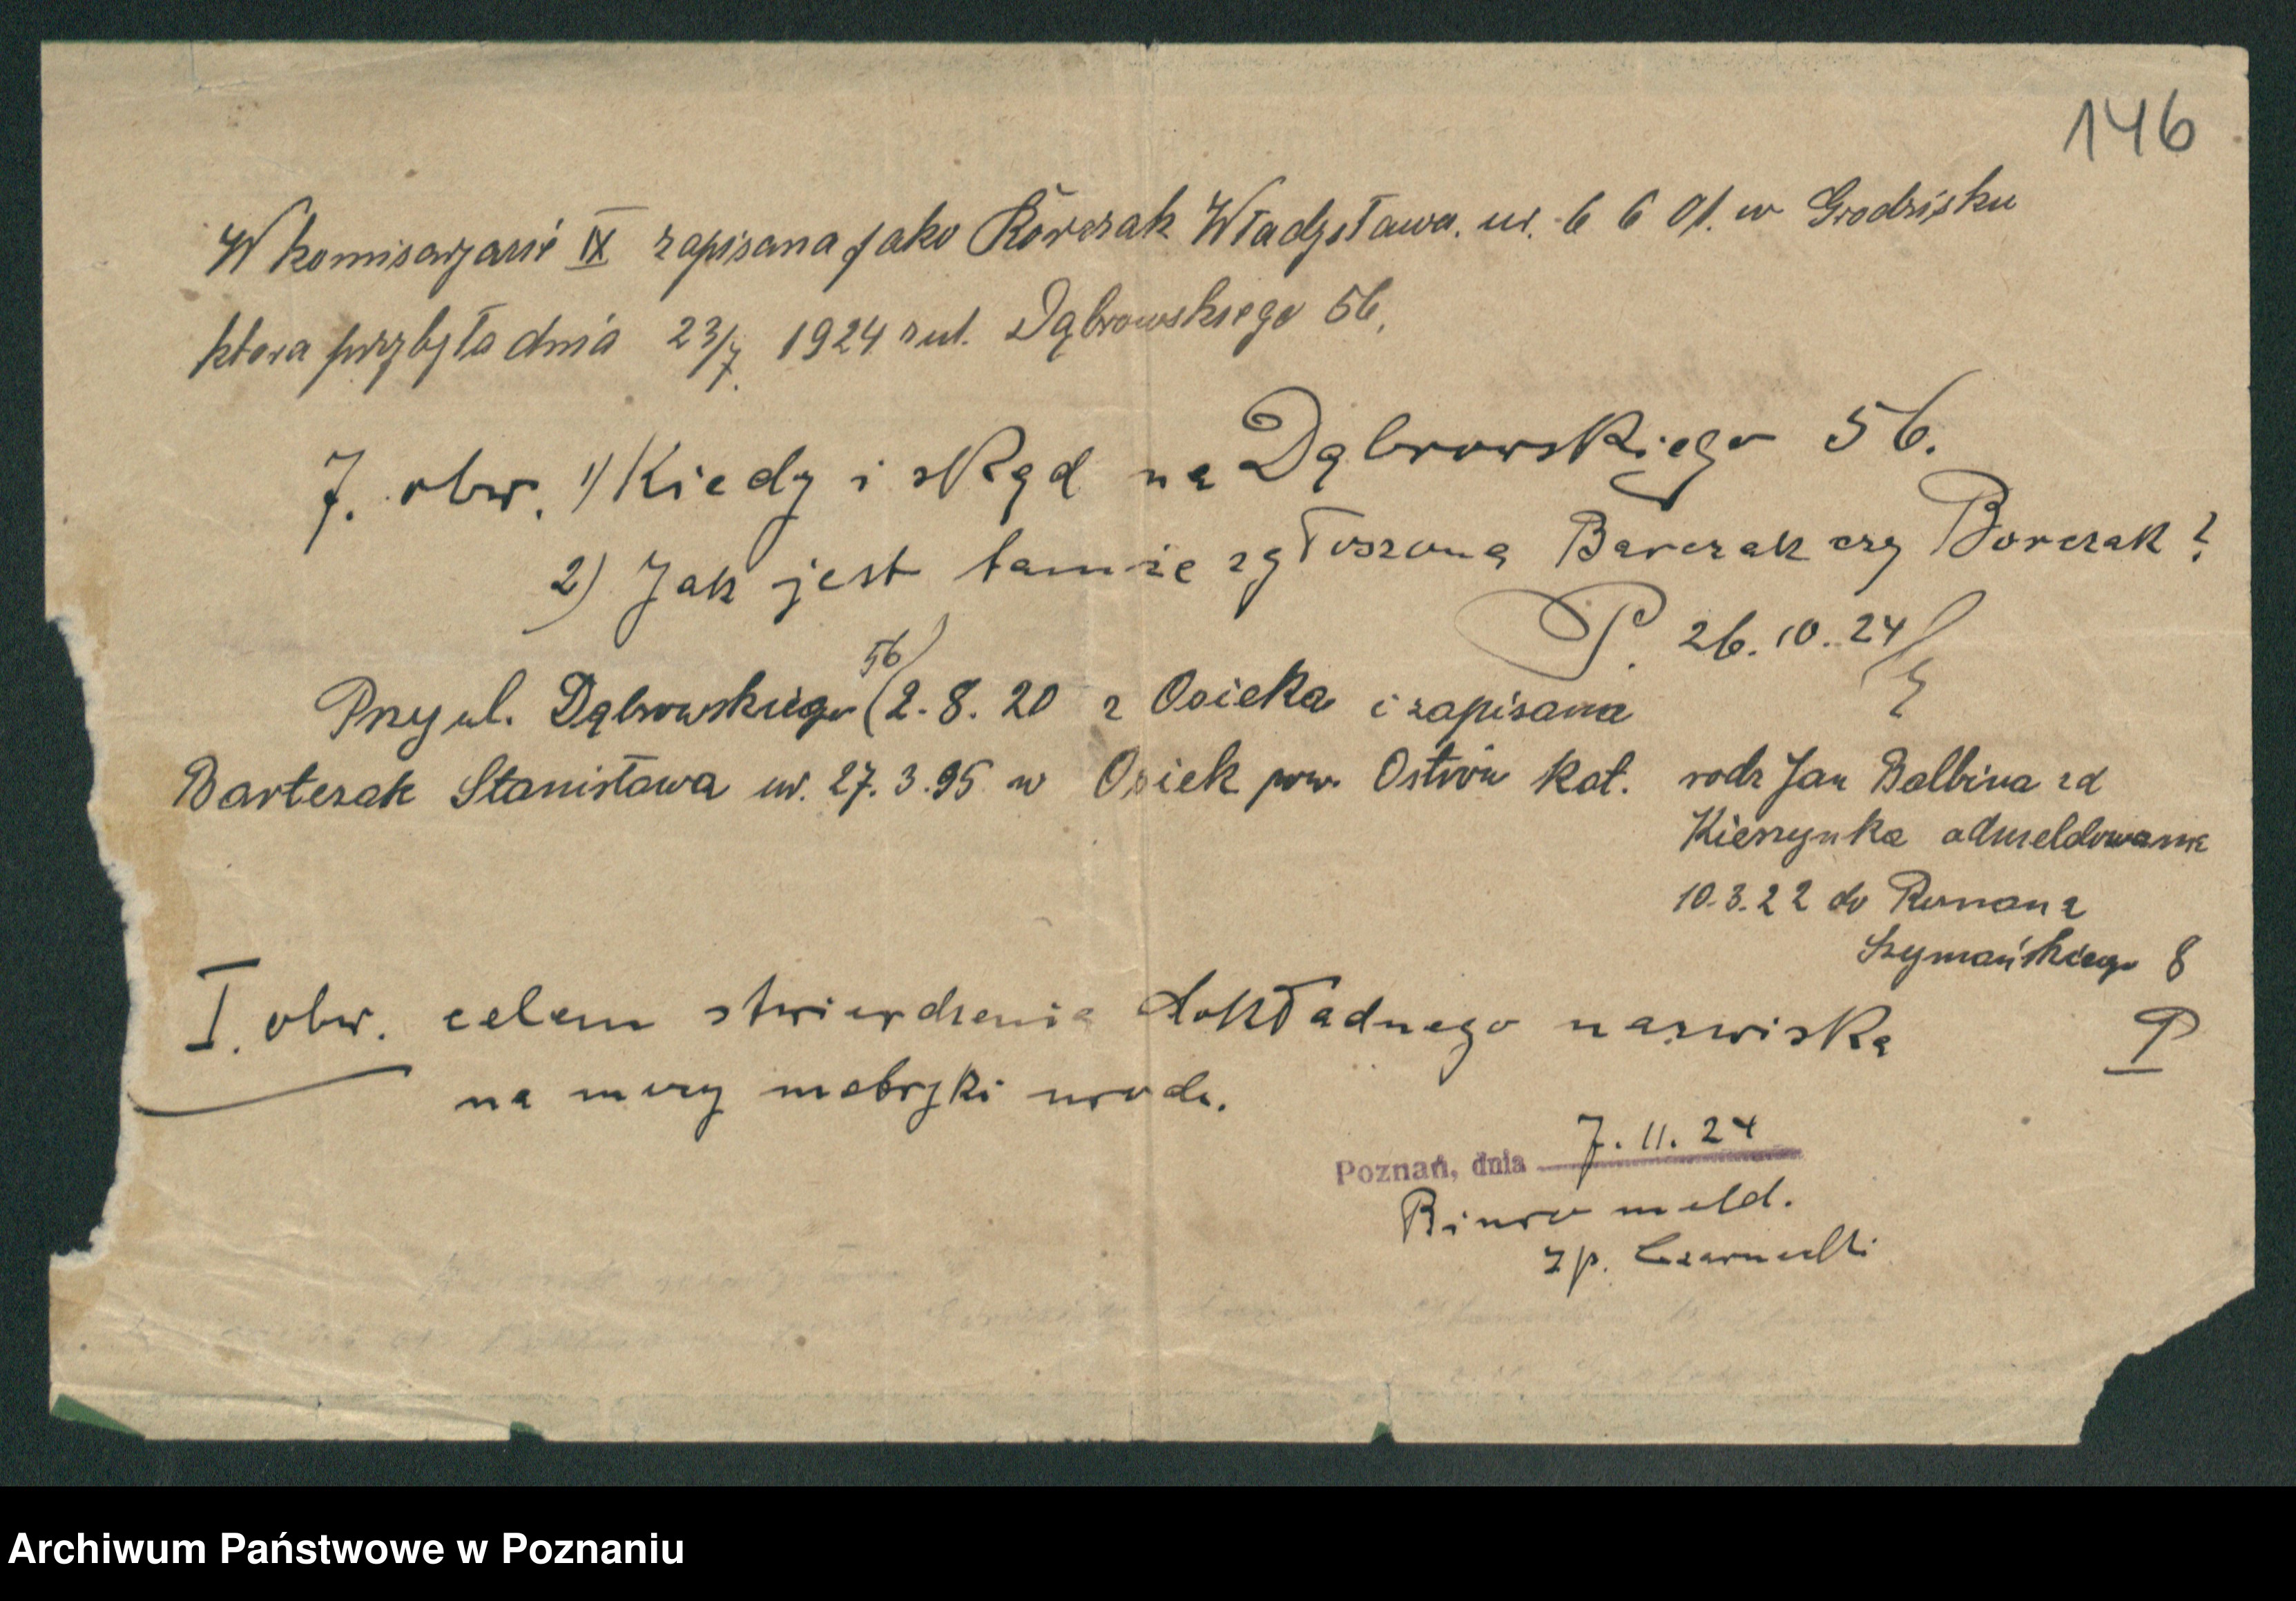 146
W komisarjacie IX zapisana jako Körczak Władysława. ur. 6 6 01. w Grodzisku
która przybyła dnia 23/7. 1924 z ul. Dąbrowskiego 56.
7. obw. 1) Kiedy i skąd na Dąbrowskiego 56.
2) Jak jest tamże zgłoszona Barczak czy Borczak?
P. 26.10.24
Przy ul. Dąbrowskiego 56 2.8.20 z Osieka i zapisana
Bartczak Stanisława ur. 27.3.95 w Osiek pow. Ostrów kat. rodz Jan Balbina zd
odmeldowana
10.3.22 do Romana
Szymańskiego 8
I. obw. celem stwierdzenia dokładnego nazwiska
na mocy metryki urodz.
P
Poznań, dnia 7.11.24
Biuro meld.
zp.
Archiwum Państwowe w Poznaniu